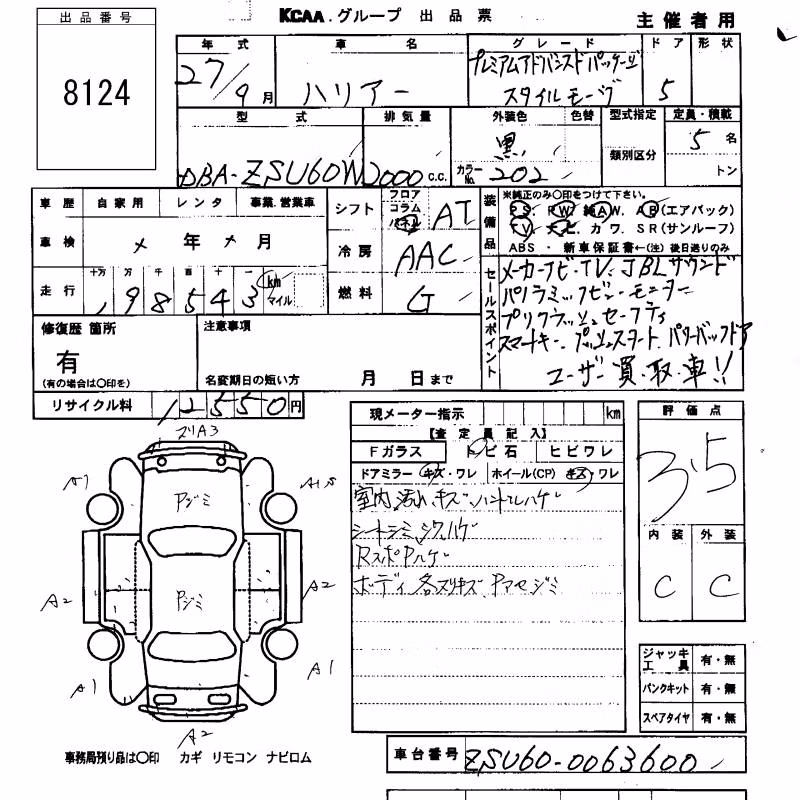 出品番号
8124
KCAA.グループ 出品票
主催者用
年式 車名 グレード ドア 形状
27/9月 ハリアー プレミアムアドバンスドパッケージ
スタイルモーヴ 5
型式 排気量 外装色 色替 型式指定 定員・積載
DBA-ZSU60W 2000 c.c. 黒 類別区分 5名
カラーNo. 202 トン
車歴 自家用 レンタ 事業.営業車
車検 × 年 × 月
走行 十万 万 千 百 十 一 km マイル
198543
シフト フロア コラム パネル AT
冷房 AAC
燃料 G
装備品
※純正のみ〇印をつけて下さい。
PS. PW. 純AW. AB(エアバック)
TV. ナビ カワ. SR(サンルーフ)
ABS・新車保証書←(注)後日送りのみ
セールスポイント
メーカーナビ・TV、JBLサウンド
パノラミックビューモニター
プリクラッシュセーフティ
スマートキー、プッシュスタート、パワーバックドア
ユーザー買・取・車!!
修復歴 箇所
有
(有の場合は〇印を)
注意事項
名変期日の短い方 月 日まで
リサイクル料 12550円
現メーター指示 km
【査定員記入】
Fガラス トビ石 ヒビワレ
ドアミラー キズ・ワレ ホイール(CP) キズ・ワレ
室内汚れ、キズ、ハンドルハゲ
シートシミ、シワ、ハゲ
RスポPハゲ
ボディ各スリキズ、Pアセジミ
評価点
3.5
内装 外装
C C
スリA3
A1
A1.5
Pジミ
Pジミ
A2
A2
A1
A1
A2
ジャッキ 工具 有・無
パンクキット 有・無
スペアタイヤ 有・無
事務局預り品は〇印 カギ リモコン ナビロム
車台番号 ZSU60-0063600